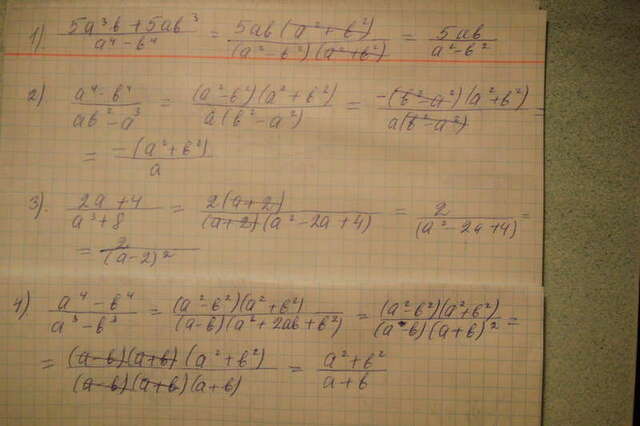 1). (5a³b + 5ab³)/(a⁴ - b⁴) = (5ab(a² + b²))/((a² - b²)(a² + b²)) = 5ab/(a² - b²)
2) (a⁴ - b⁴)/(ab² - a³) = ((a² - b²)(a² + b²))/(a(b² - a²)) = (-(b² - a²)(a² + b²))/(a(b² - a²)) =
= (-(a² + b²))/a
3). (2a + 4)/(a³ + 8) = (2(a + 2))/((a + 2)(a² - 2a + 4)) = 2/((a² - 2a + 4)) =
= 2/((a - 2)²)
4) (a⁴ - b⁴)/(a³ - b³) = ((a² - b²)(a² + b²))/((a - b)(a² + 2ab + b²)) = ((a² - b²)(a² + b²))/((a - b)(a + b)²) =
= ((a - b)(a + b)(a² + b²))/((a - b)(a + b)(a + b)) = (a² + b²)/(a + b)